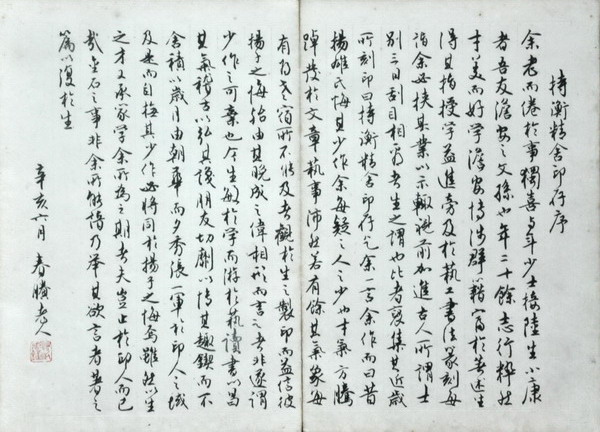 持衡精舍印存序
余老而倦於事獨喜与年少士接陸生小康
者吾友澹安之文孫也年二十餘志行粹然
才美而好學澹安博涉群籍富於著述生
得其指授学益進旁及於執工書法篆刻每
詣余必挾其業以示輒視前加進古人所謂士
別三日刮目相看者生之謂也比者裒集其近歲
所刻印曰持衡精舍印存乞余一言余作而曰昔
揚雄氏悔其少作余每疑之人之少也才氣方騰
踔發於文章執事沛然若有餘其氣象每
有為老宿所不能及者觀於生之製印而益信彼
揚子之悔殆由其晚成之偉相形而言之者非遂謂
少作之可棄也今生敏於学而游於執讀書以昌
其氣稽古以弘其識朋友切劘以博其趣鍥而不
舍積以歲月由朝華而夕秀張一軍於印人之域
及是而自悔其少作必將同於揚子之悔焉雖然以生
之才又承家学余所為之期者夫豈止於印人而已
哉金石之事非余所能諳乃舉其欲言者書之
篇以復於生
辛亥六月 春老人